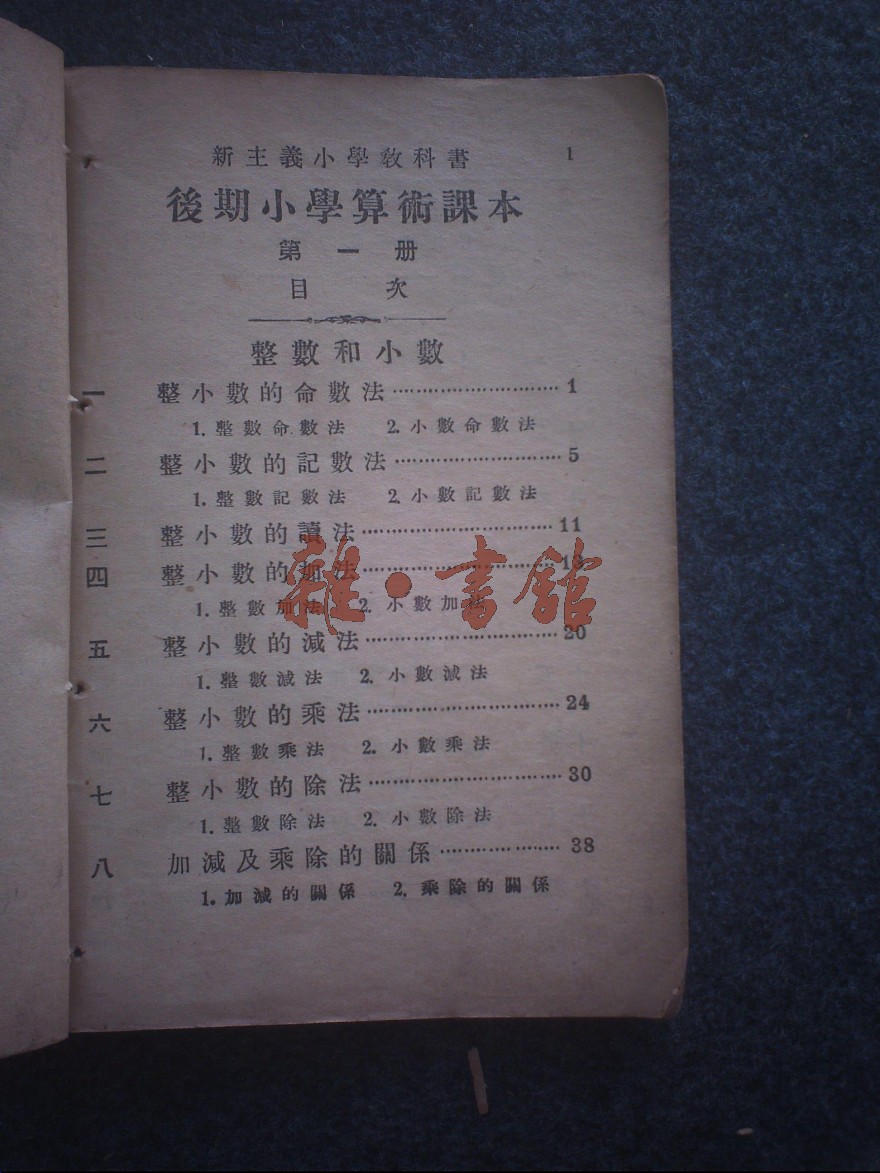 新主義小學教科書 1
後期小學算術課本
第一册
目次
整數和小數
一 整小數的命數法 1
1. 整數命數法 2. 小數命數法
二 整小數的記數法 5
1. 整數記數法 2. 小數記數法
三 整小數的讀法 11
四 整小數的加法 13
1. 整數加法 2. 小數加法
雜·書館
五 整小數的減法 20
1. 整數減法 2. 小數減法
六 整小數的乘法 24
1. 整數乘法 2. 小數乘法
七 整小數的除法 30
1. 整數除法 2. 小數除法
八 加減及乘除的關係 38
1. 加減的關係 2. 乘除的關係